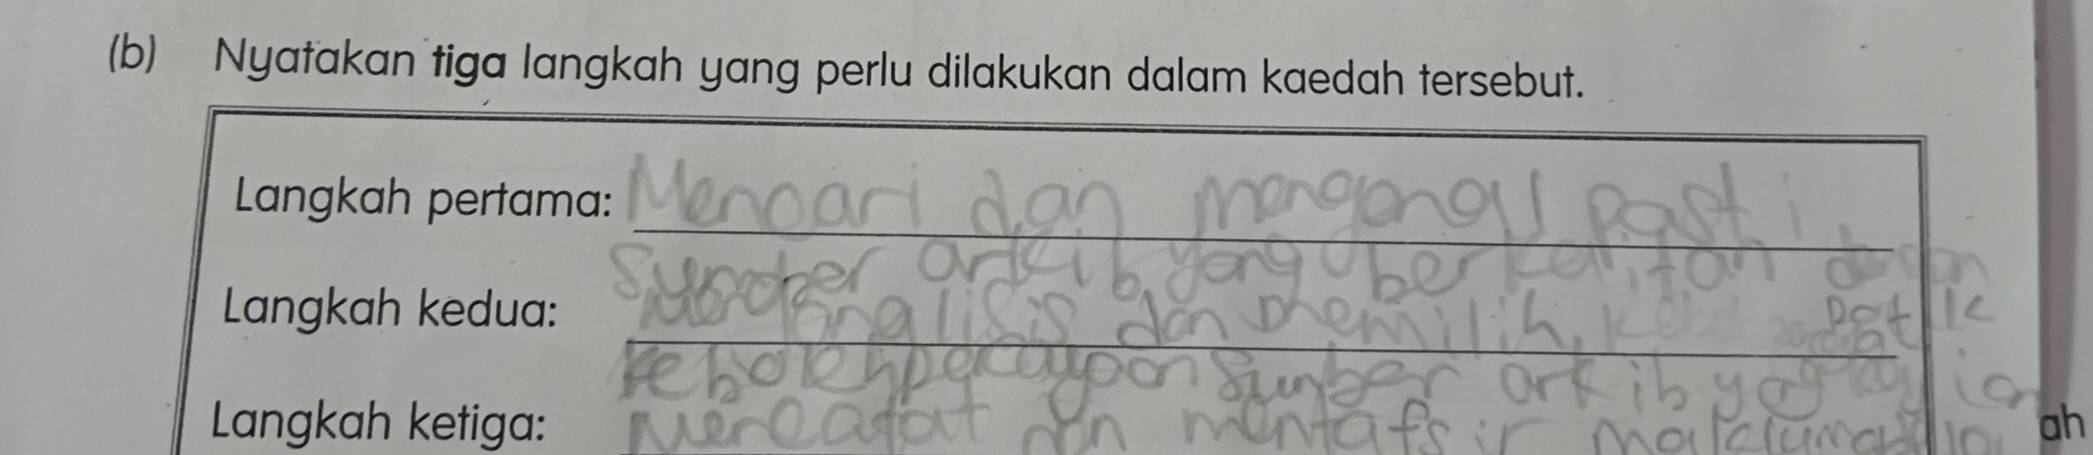 (b) Nyatakan tiga langkah yang perlu dilakukan dalam kaedah tersebut.
Langkah pertama: Mencari dan mengenal pasti
sumber arkib yang berkaitan dengan
Langkah kedua: Menganalisis dan memilih
kebolehpercayaan sumber arkib
Langkah ketiga: Mencatat dan mentafsir maklumat
ah